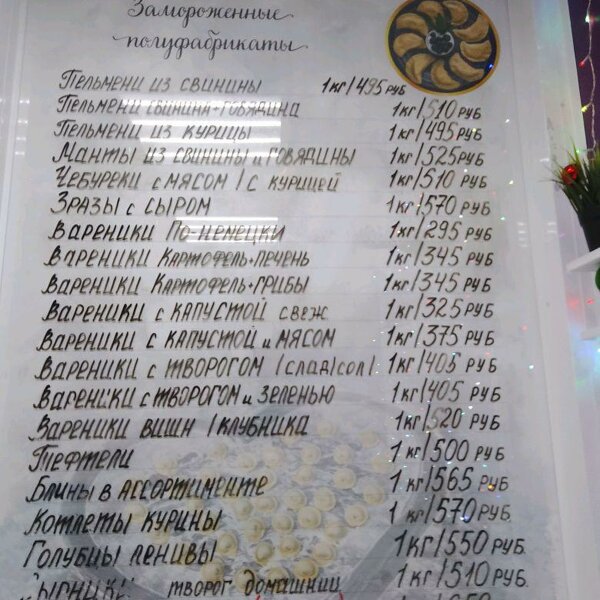 Замороженные
полуфабрикаты
Пельмени из свинины 1кг/495руб
Пельмени свинина+говядина 1кг/510 руб
Пельмени из курицы 1кг/495руб
Манты из свинины и говядины 1кг/525руб
Чебуреки с мясом / с курицей 1кг/510 руб
Зразы с сыром 1кг/570 руб
Вареники по-немецки 1кг/295 руб
Вареники картофель+печень 1кг/345 руб
Вареники картофель+грибы 1кг/345 руб
Вареники с капустой свеж 1кг/325 руб
Вареники с капустой и мясом 1кг/375 руб
Вареники с творогом (слад)сол). 1кг/405 руб
Вареники с творогом и зеленью 1кг/405 руб
Вареники вишн / клубника 1кг/520 руб
Тефтели 1кг/500 руб
Блины в ассортименте 1кг/565 руб
Котлеты курины 1кг/570 руб
Голубцы ленивы 1кг/550 руб
Сырники творог домашнии 1кг/510 руб